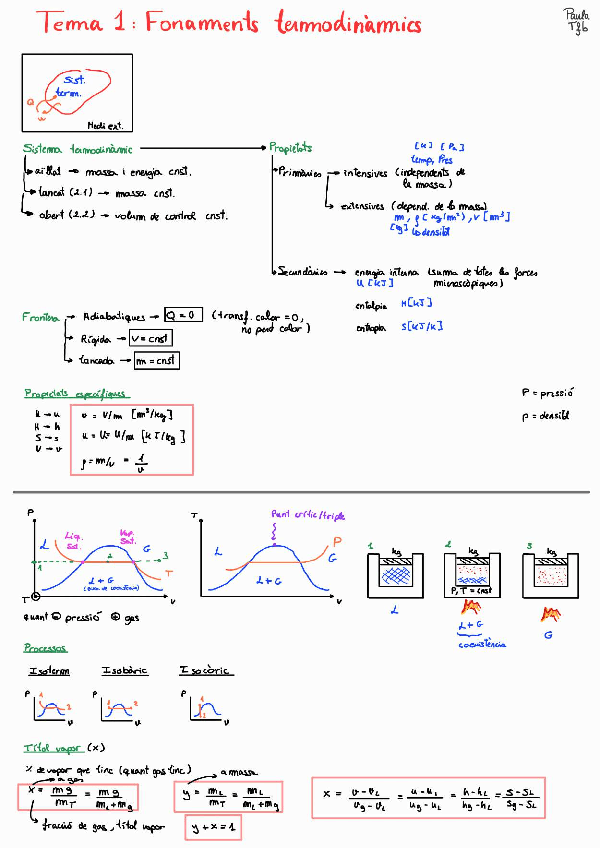 Tema 1: Fonaments termodinàmics
Paula
Tfb
Sist.
term.
Q
W
Medi ext.
Sistema termodinàmic → Propietats
aïllat → massa i energia cnst.
tancat (2.1) → massa cnst.
obert (2.2) → volum de control cnst.
[K] [Pa]
temp, Pres
Primàries → intensives (independents de
la massa)
extensives (depend. de la massa)
m, ρ [kg/m³], V [m³]
[kg] densitat
Secundàries → energia interna (suma de totes les forces
microscòpiques)
U [kJ]
entalpia H [kJ]
entropia S [kJ/K]
Frontera → Adiabàtiques → Q = 0 (transf. calor = 0,
no perd calor)
Rígida → V = cnst
tancada → m = cnst
Propietats específiques
U → u
H → h
S → s
V → v
v = V/m [m³/kg]
u = U/m [kJ/kg]
ρ = m/V = 1/v
P = pressió
ρ = densitat
P
L
Líq.
Sat.
Vap.
Sat.
G
1
2
3
L+G
T
T
v
quant ⊖ pressió ⊕ gas
T
Punt crític/triple
P
L
G
L+G
v
1
kg
L
2
kg
P, T = cnst
L+G
coexistència
3
kg
G
Processos
Isoterm
Isobàric
Isocòric
P
1
2
v
P
1
2
v
P
1
2
v
Títol vapor (x)
% de vapor que tinc (quant gas tinc)
a gas
x = mg/mT = mg/(mL+mg)
fracció de gas, títol vapor
a massa
y = mL/mT = mL/(mL+mg)
y + x = 1
x = (v-vL)/(vg-vL) = (u-uL)/(ug-uL) = (h-hL)/(hg-hL) = (s-sL)/(sg-sL)